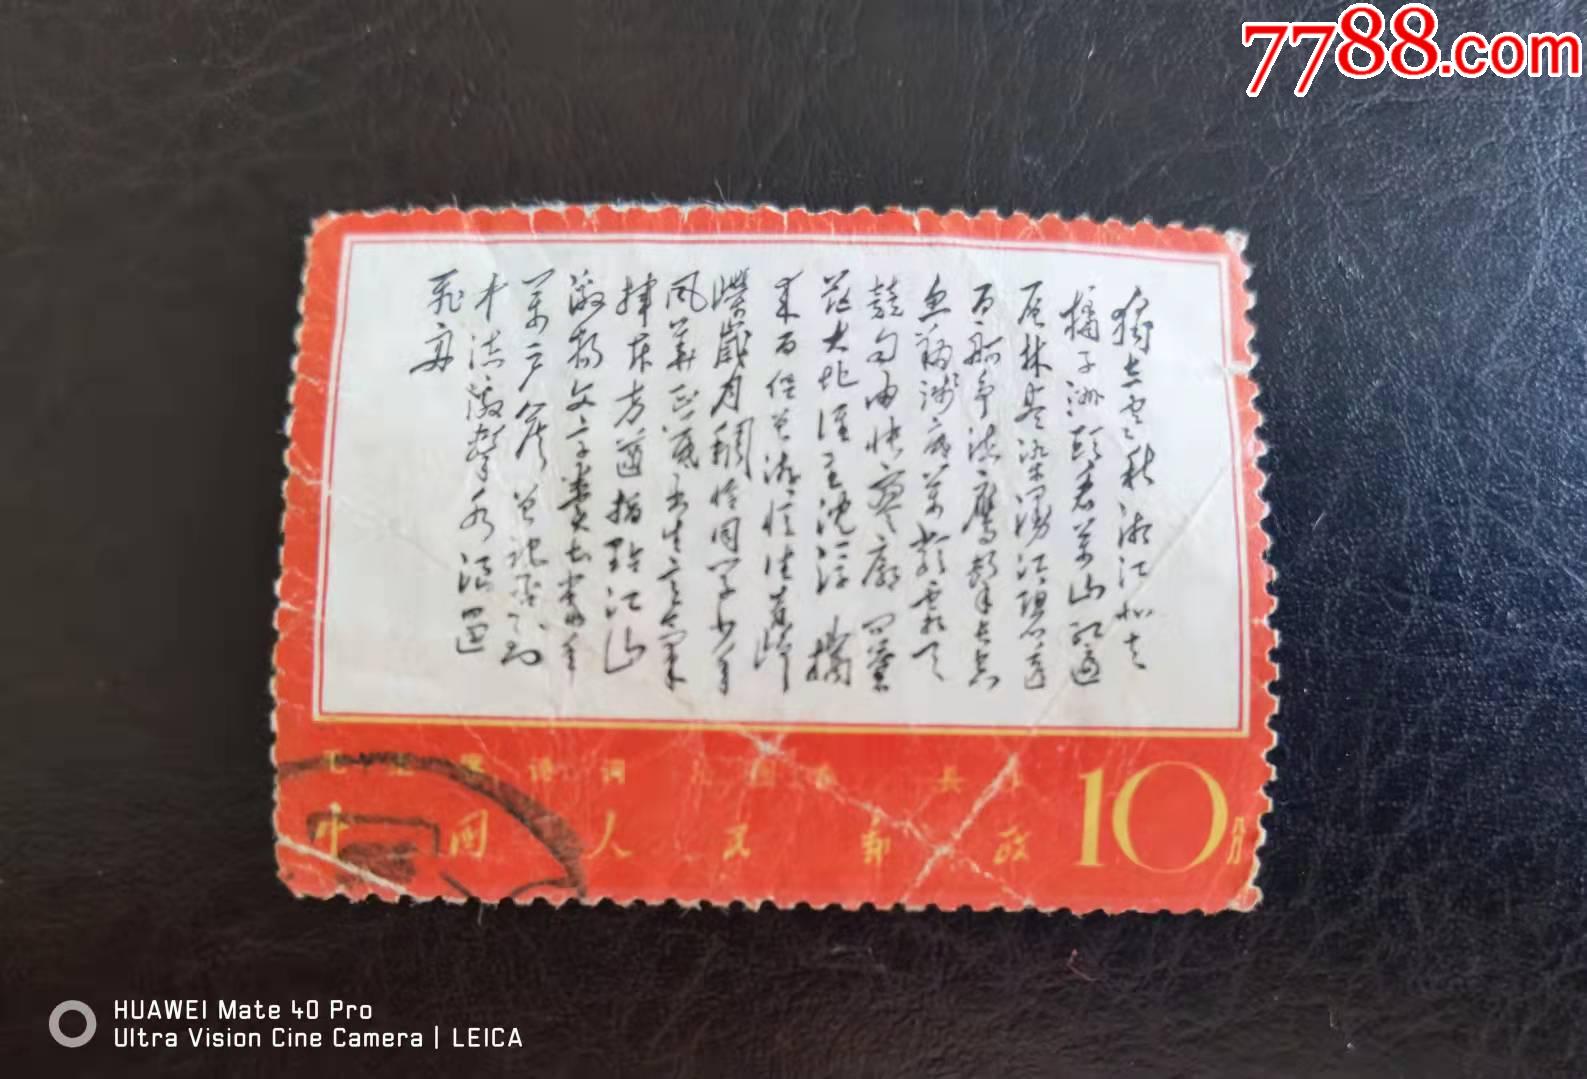 7788.com
獨立寒秋湘江北去
橘子洲頭看萬山紅遍
层林尽染漫江碧透
百舸争流鷹擊長空
魚翔浅底萬類霜天
競自由怅寥廓問蒼
茫大地谁主沉浮 攜
来百侣曾游憶往昔峥
嶸歲月稠恰同學少年
風華正茂書生意氣
揮斥方遒指點江山
激揚文字糞土當年
萬户侯曾記否到
中流激擊水浪遏
飛舟
毛主席诗词 沁園春 長沙
中国人民邮政 10分
HUAWEI Mate 40 Pro
Ultra Vision Cine Camera | LEICA